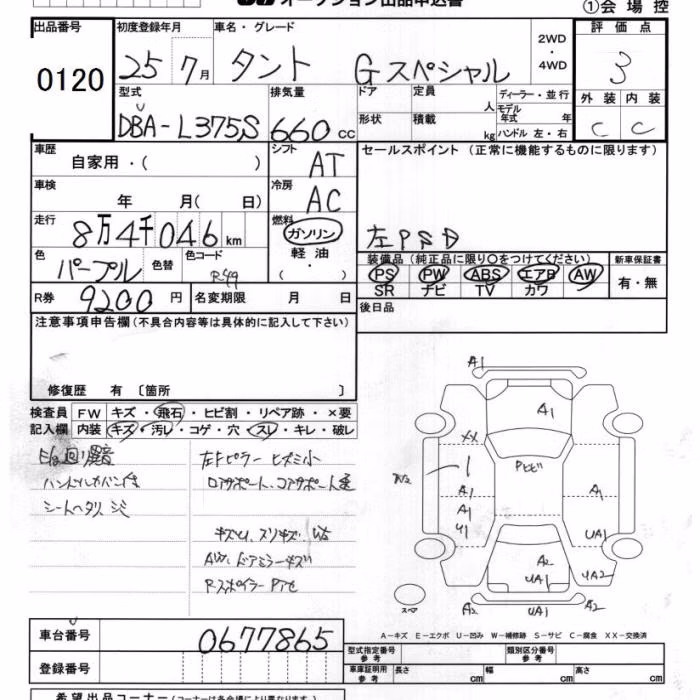 オークション出品申込書
①会場控
出品番号 初度登録年月 車名・グレード 2WD・4WD 評価点
0120 25年7月 タント Gスペシャル 3
型式 排気量 ドア 定員 人 ディーラー・並行 外装 内装
DBA-L375S 660cc 形状 積載 kg モデル年式 年 ハンドル 左・右 C C
車歴 自家用・( ) シフト AT セールスポイント (正常に機能するものに限ります)
車検 年 月( 日) 冷房 AC
走行 8万4千046km 燃料 ガソリン・軽油・( )
左PSD
色 パープル 色替 色コード R49
装備品 (純正品に限り○をつけてください) 新車保証書
PS PW ABS エアB AW 有・無
SR ナビ TV カワ
R券 9200円 名変期限 月 日 後日品
注意事項申告欄(不具合内容等は具体的に記入して下さい)
修復歴 有 〔箇所 〕
検査員記入欄 FW キズ・飛石・ヒビ割・リペア跡・×要
内装 キズ・汚レ・コゲ・穴・スレ・キレ・破レ
シートヘタリ シミ
左Fピラー ヒズミ小
ロアサポート、コアサポート
キズ凹、スリキズ
AW、ドアミラーキズ
Rスポイラー
A1
A1
XX
Pヒビ
A1
A1
A1
UA1
A2
UA1
UA2
A2
UA1
A2
スペア
A-キズ E-エクボ U-凹み W-補修跡 S-サビ C-腐食 XX-交換済
車台番号 0677865
登録番号
型式指定番号 参考 類別区分番号 参考
車庫証明用 参考 長さ cm 幅 cm 高さ cm
希望出品コーナー(コーナーは各会場により異なります。)